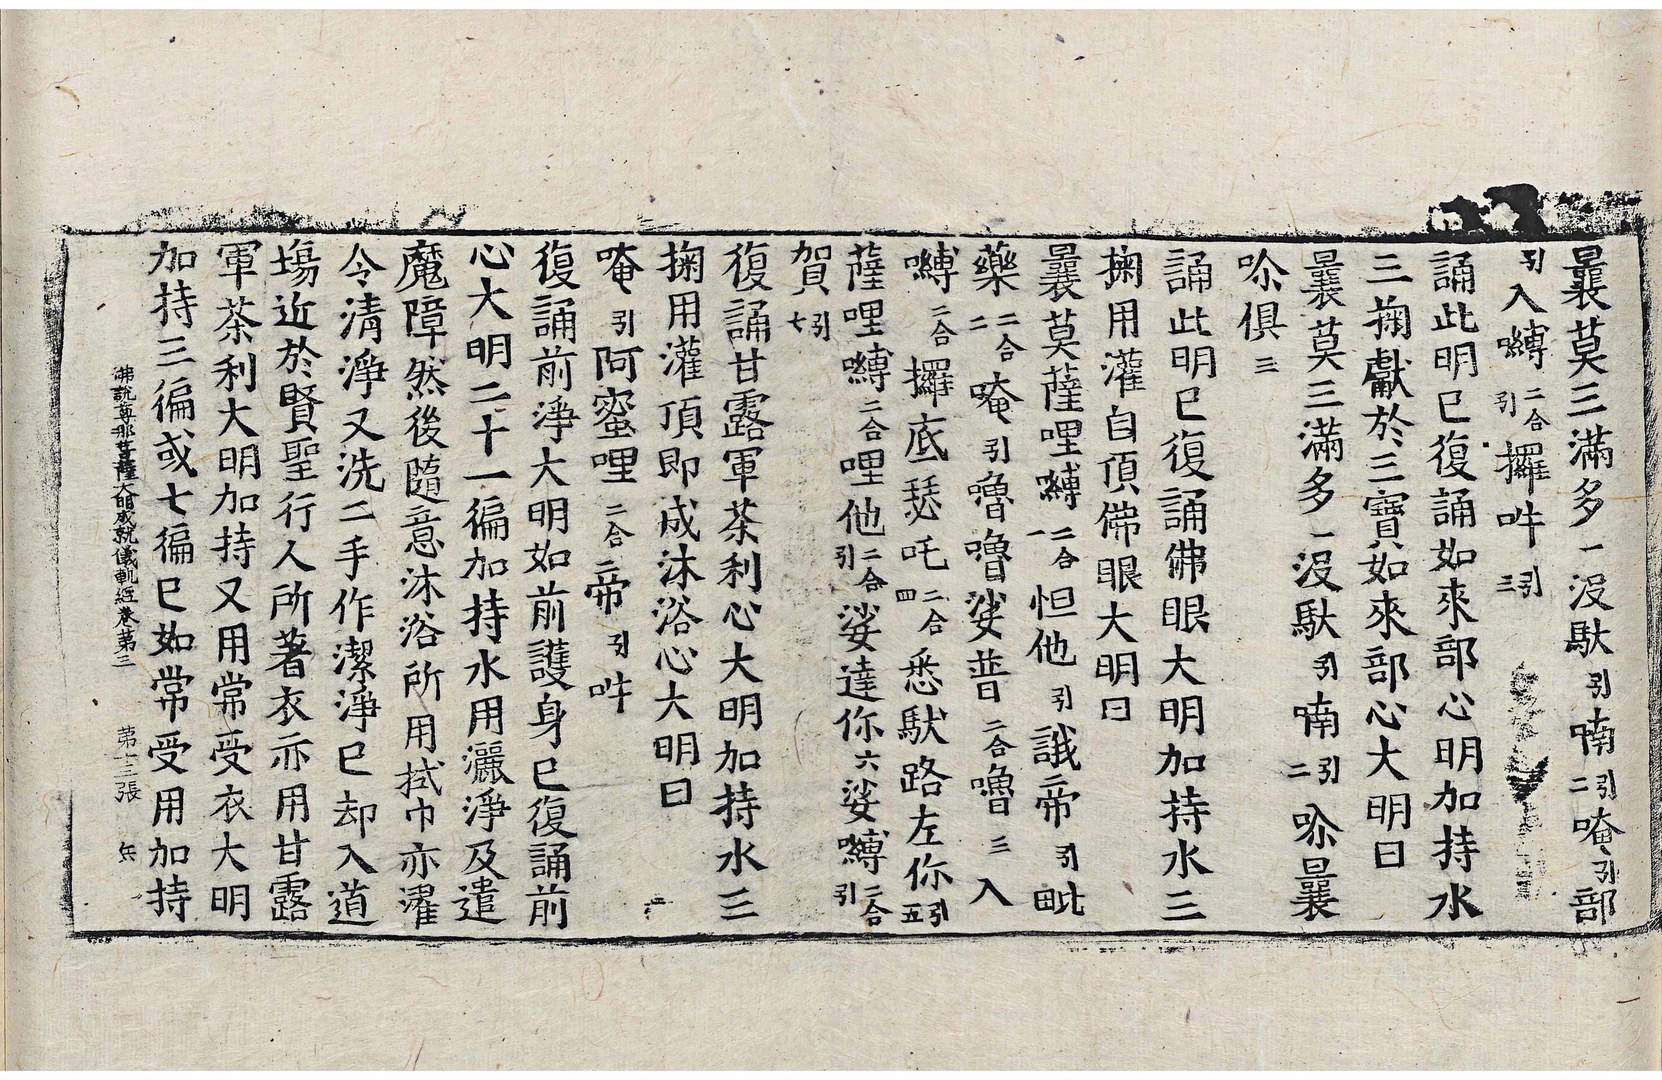 曩莫三滿多一沒馱引喃引二唵引部
引入嚩二合引攞吽引三
誦此明已復誦如來部心明加持水
三掬獻於三寶如來部心大明曰
曩莫三滿多一沒馱引喃引二尒曩
尒俱三
誦此明已復誦佛眼大明加持水三
掬用灌自頂佛眼大明曰
曩莫薩哩嚩二合一怛他引誐帝引毗
藥二合二唵引嚕嚕娑普二合嚕三入
嚩二合攞底瑟吒二合四悉馱路左你引五
薩哩嚩二合哩他二合引娑達你六娑嚩二合引
賀引七
復誦甘露軍荼利心大明加持水三
掬用灌頂即成沐浴心大明曰
唵引阿蜜哩二合帝引吽
復誦前淨大明如前護身已復誦前
心大明二十一徧加持水用灑淨及遣
魔障然後隨意沐浴所用拭巾亦濯
令清淨又洗二手作潔淨已却入道
場近於賢聖行人所著衣亦用甘露
軍荼利大明加持又用常受衣大明
加持三徧或七徧已如常受用加持
佛說尊那菩薩大明成就儀軌經卷第三 第十二張